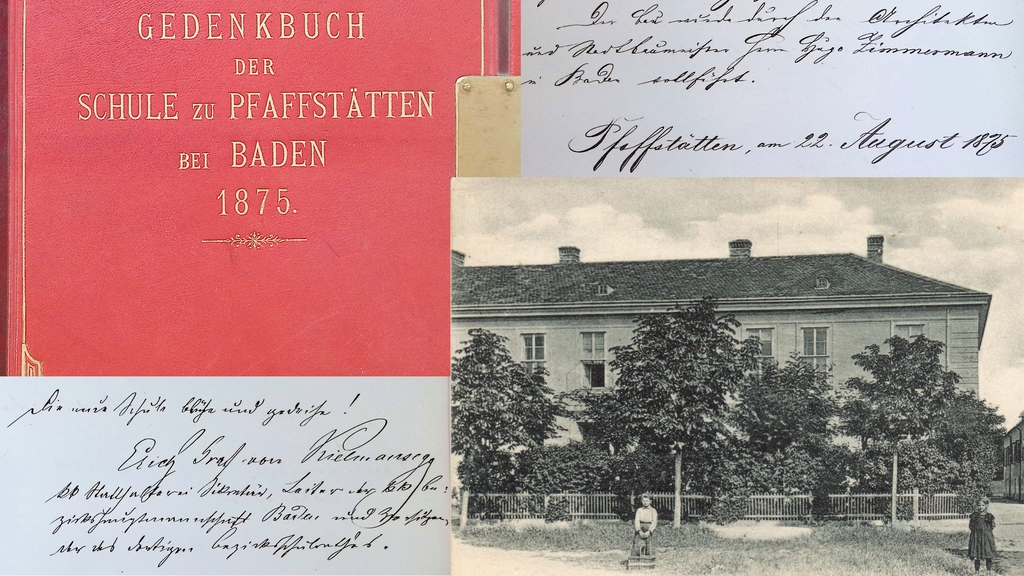 GEDENKBUCH
DER
SCHULE ZU PFAFFSTÄTTEN
BEI BADEN
1875.
Der Bau wurde durch den Architekten
und Stadtbaumeister Herrn Hugo Zimmermann
in Baden vollführt.
Pfaffstätten, am 22. August 1875
Die neue Schule blühe und gedeihe!
Erich Graf von Kielmansegg
kk Statthalterei Sekretär, Leiter der kk Be-
zirkshauptmannschaft Baden und Vorsitzen-
der des dortigen Bezirksschulrathes.